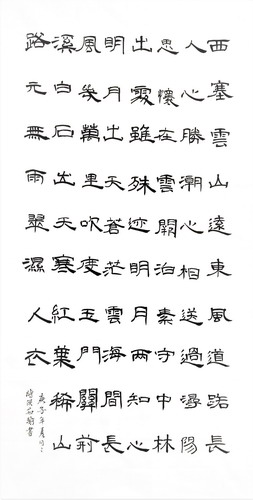 西塞雲山遠東風道路長
人心勝潮心相送過潯陽
思懷在雲闕泊素守中林
出處雖殊迹明月兩知心
明月出天蒼茫雲海間長
風幾萬里吹度玉門關荊
溪白石出天寒紅葉稀山
路元無雨翠濕人衣
庚子年夏月
書